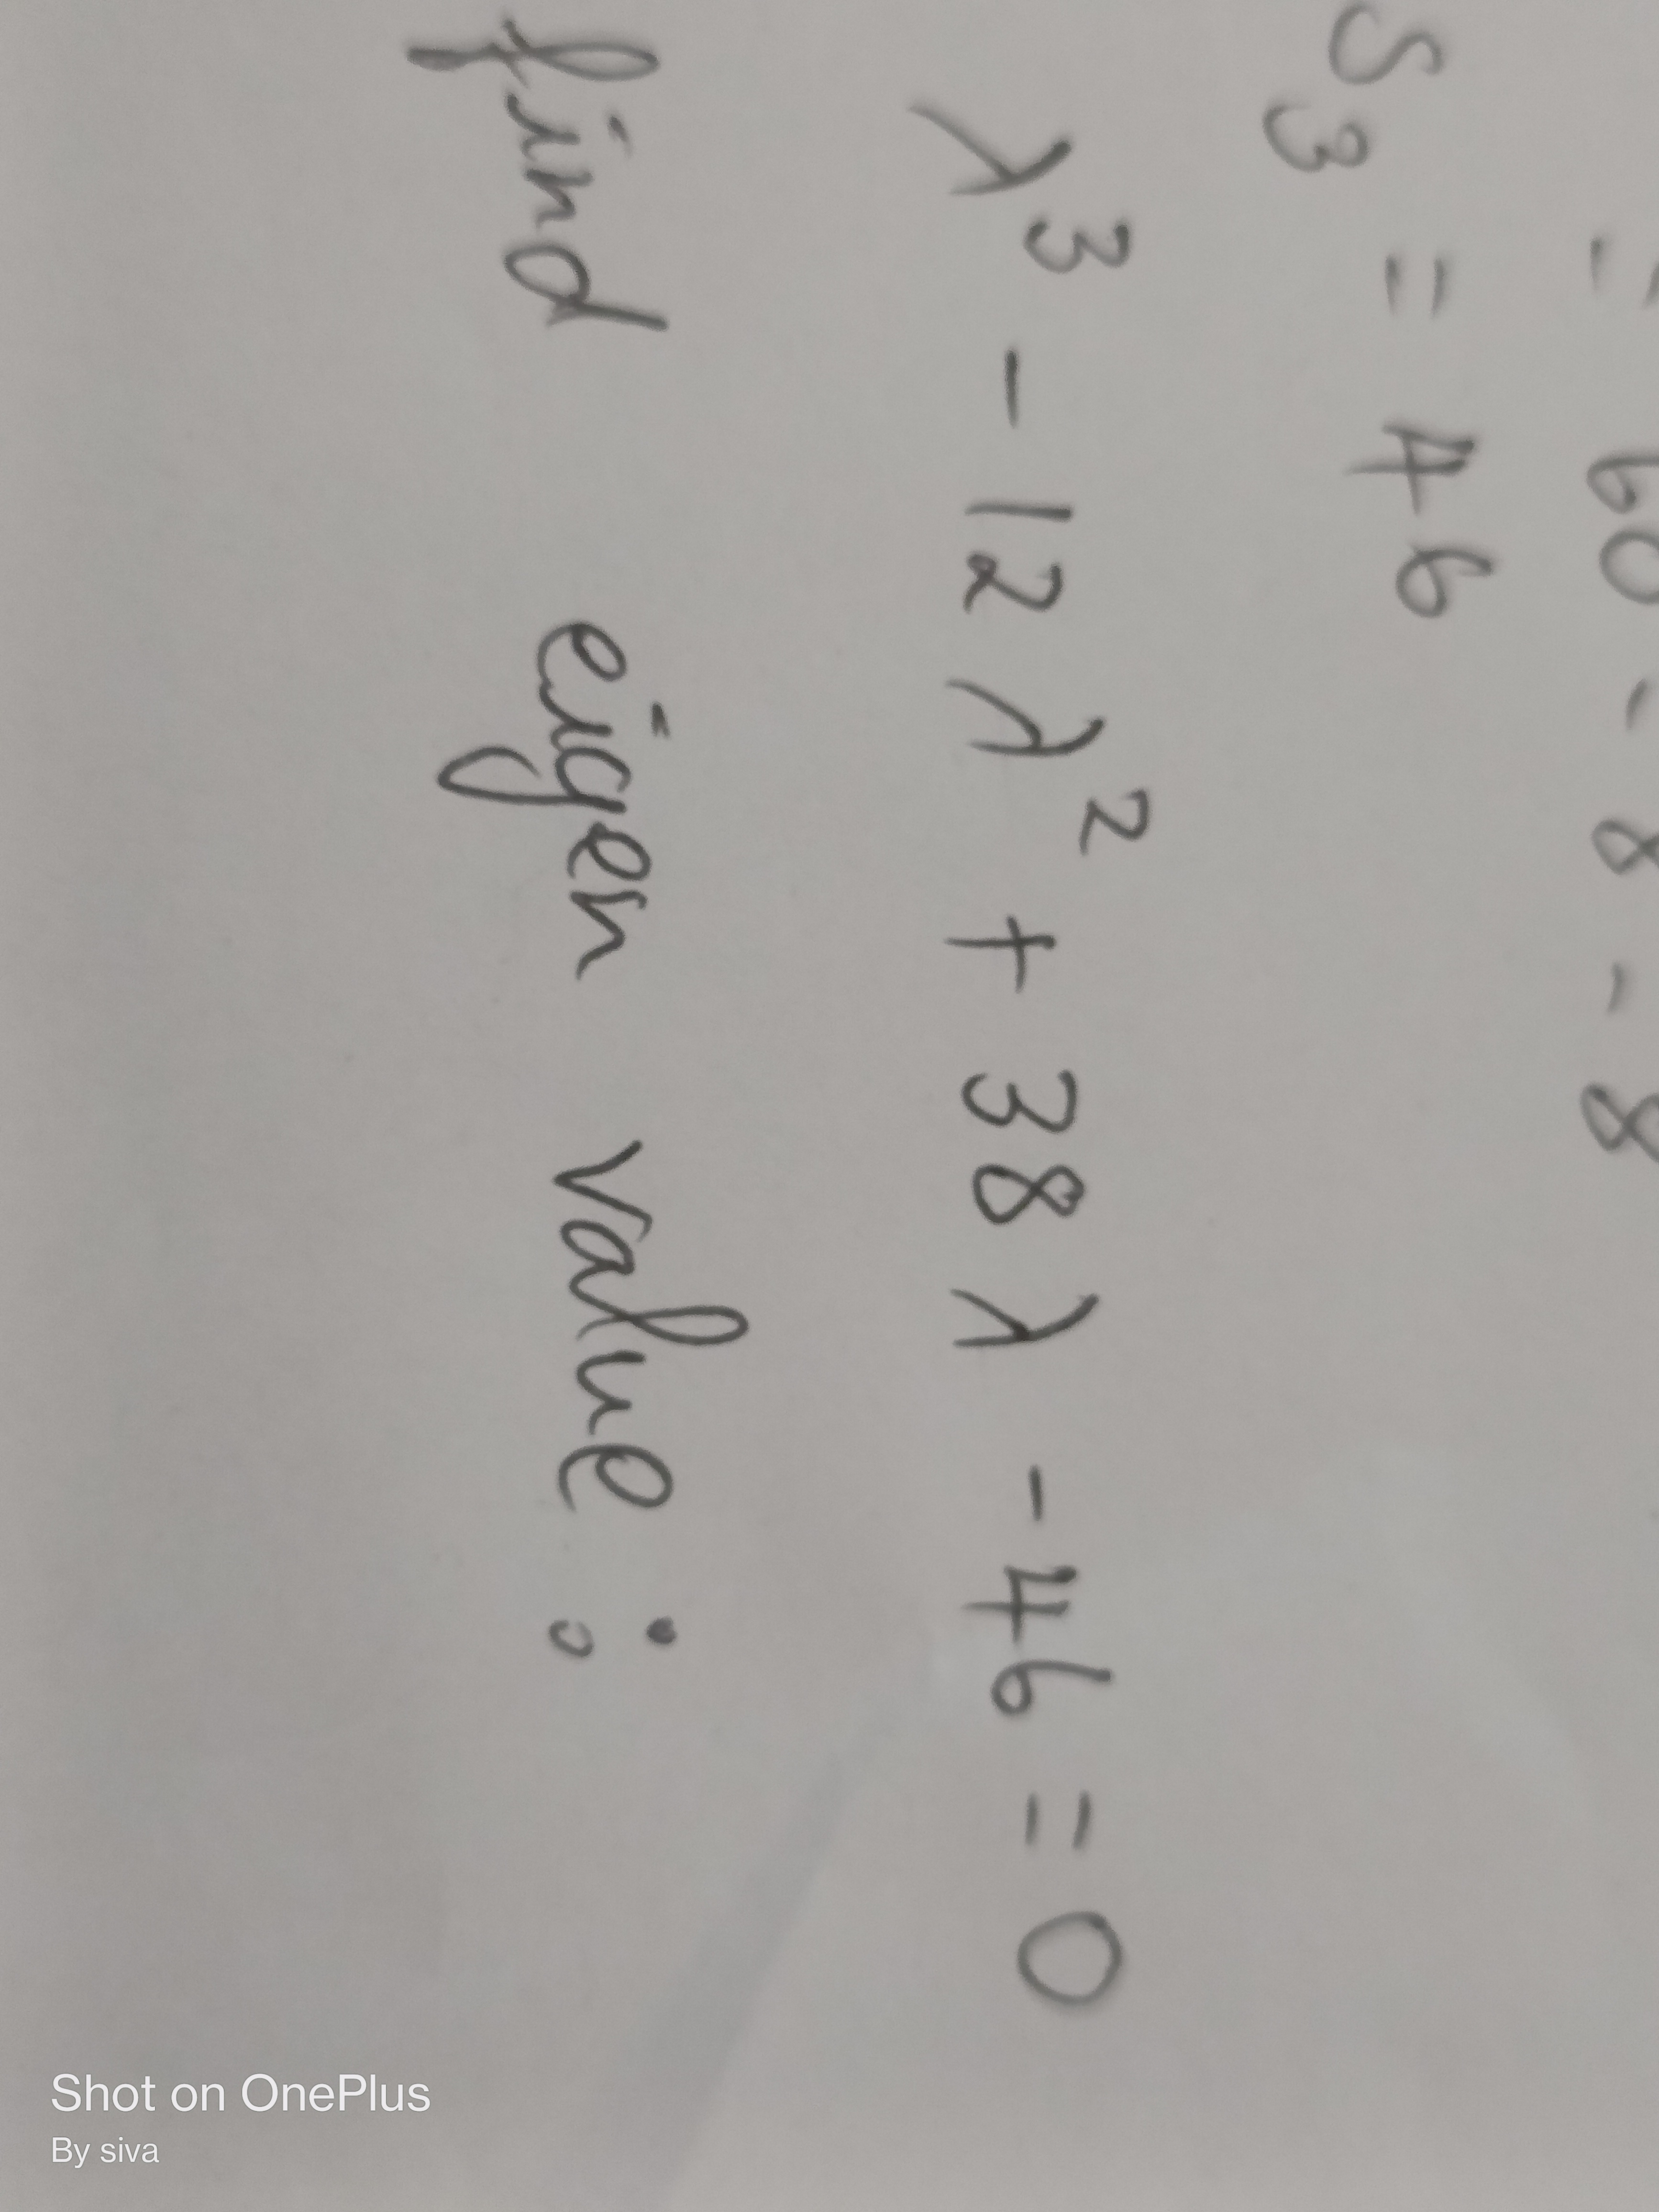 = 60 - 8 - 8
S3 = 46
λ³ - 12λ² + 38λ - 46 = 0
find eigen value :
Shot on OnePlus
By siva